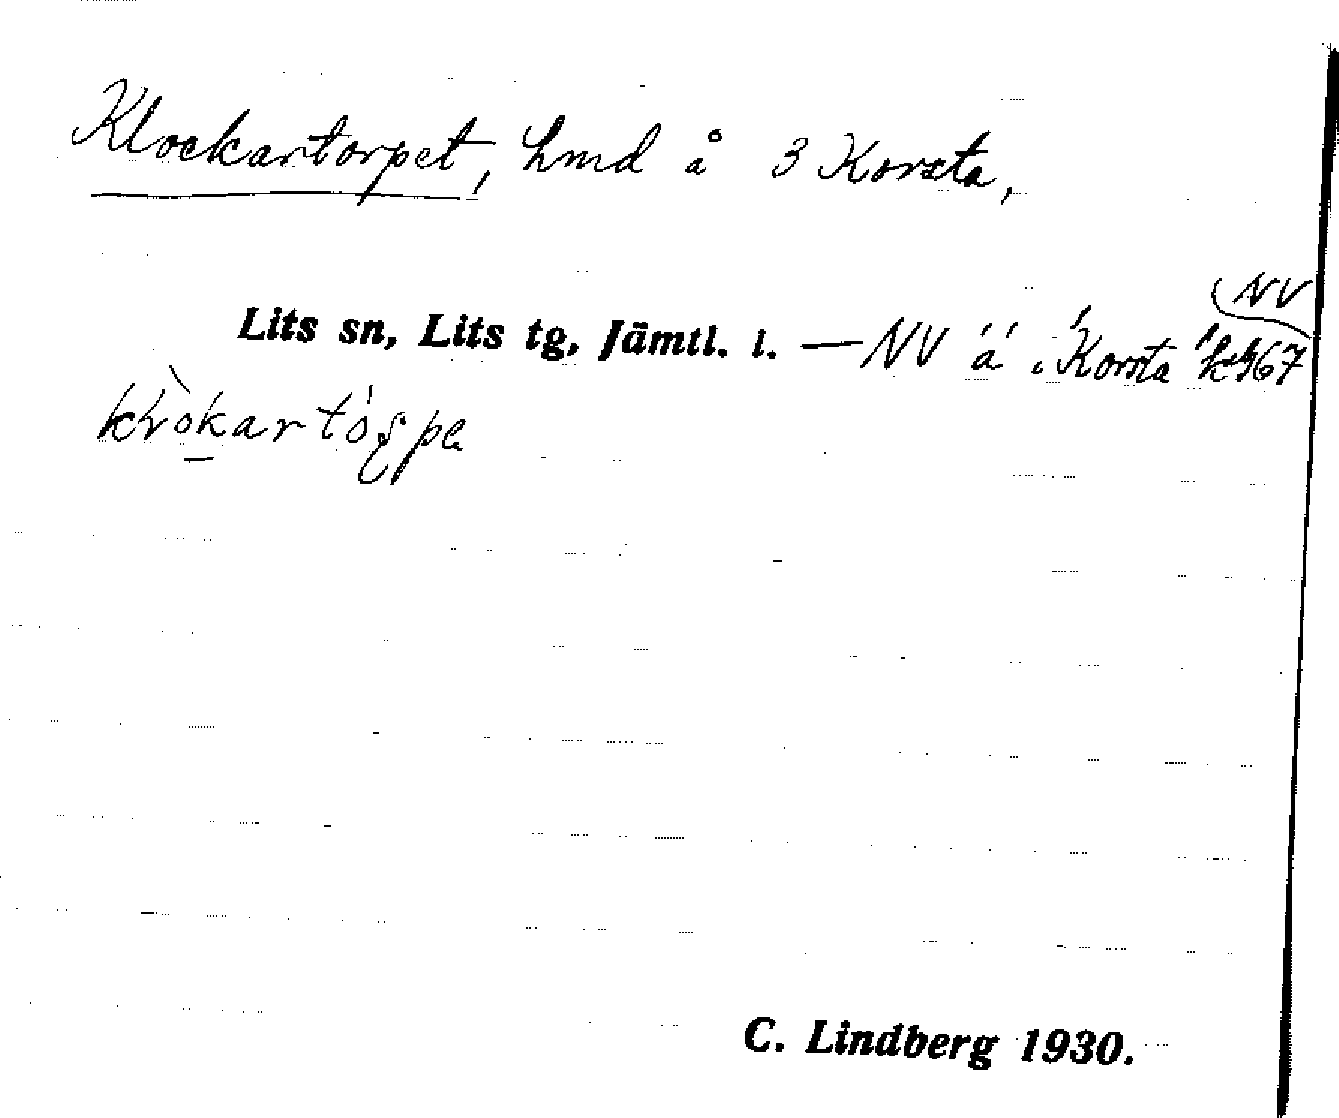 Klockartorpet, hmd å 3 Korsta,
NV
Lits sn, Lits tg, Jämtl. l. — NV å Korsta 467
C. Lindberg 1930.